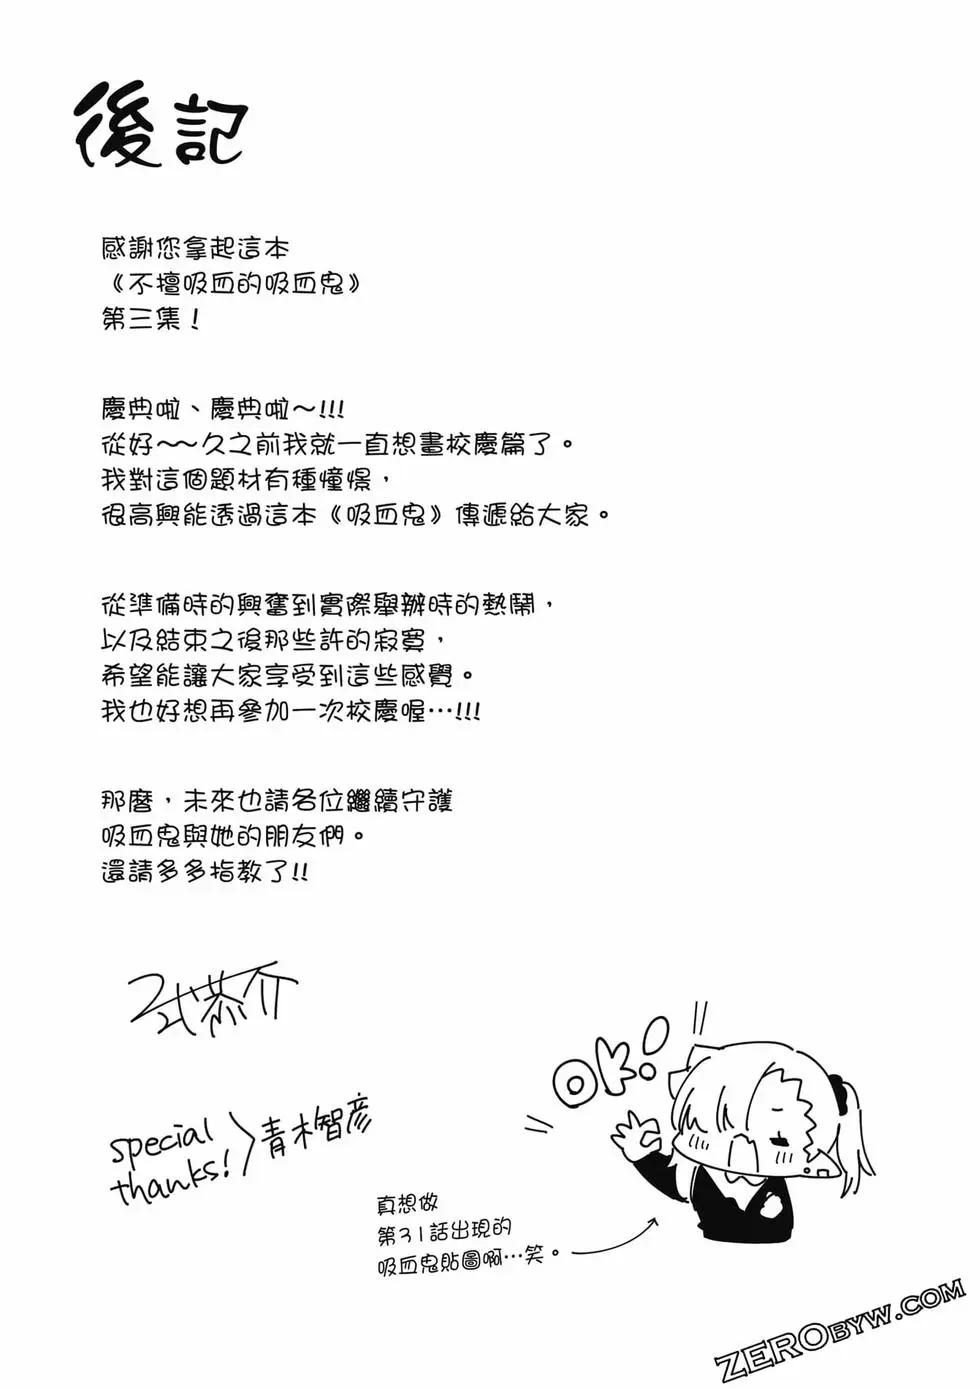 後記
感謝您拿起這本
《不擅吸血的吸血鬼》
第三集！
慶典啦、慶典啦～!!!
從好～～久之前我就一直想畫校慶篇了。
我對這個題材有種憧憬，
很高興能透過這本《吸血鬼》傳遞給大家。
從準備時的興奮到實際舉辦時的熱鬧，
以及結束之後那些許的寂寞，
希望能讓大家享受到這些感覺。
我也好想再參加一次校慶喔…!!!
那麼，未來也請各位繼續守護
吸血鬼與她的朋友們。
還請多多指教了!!
二式恭介
special thanks!
青木智彦
OK!
真想做
第31話出現的
吸血鬼貼圖啊…笑。
ZEROBYW.COM